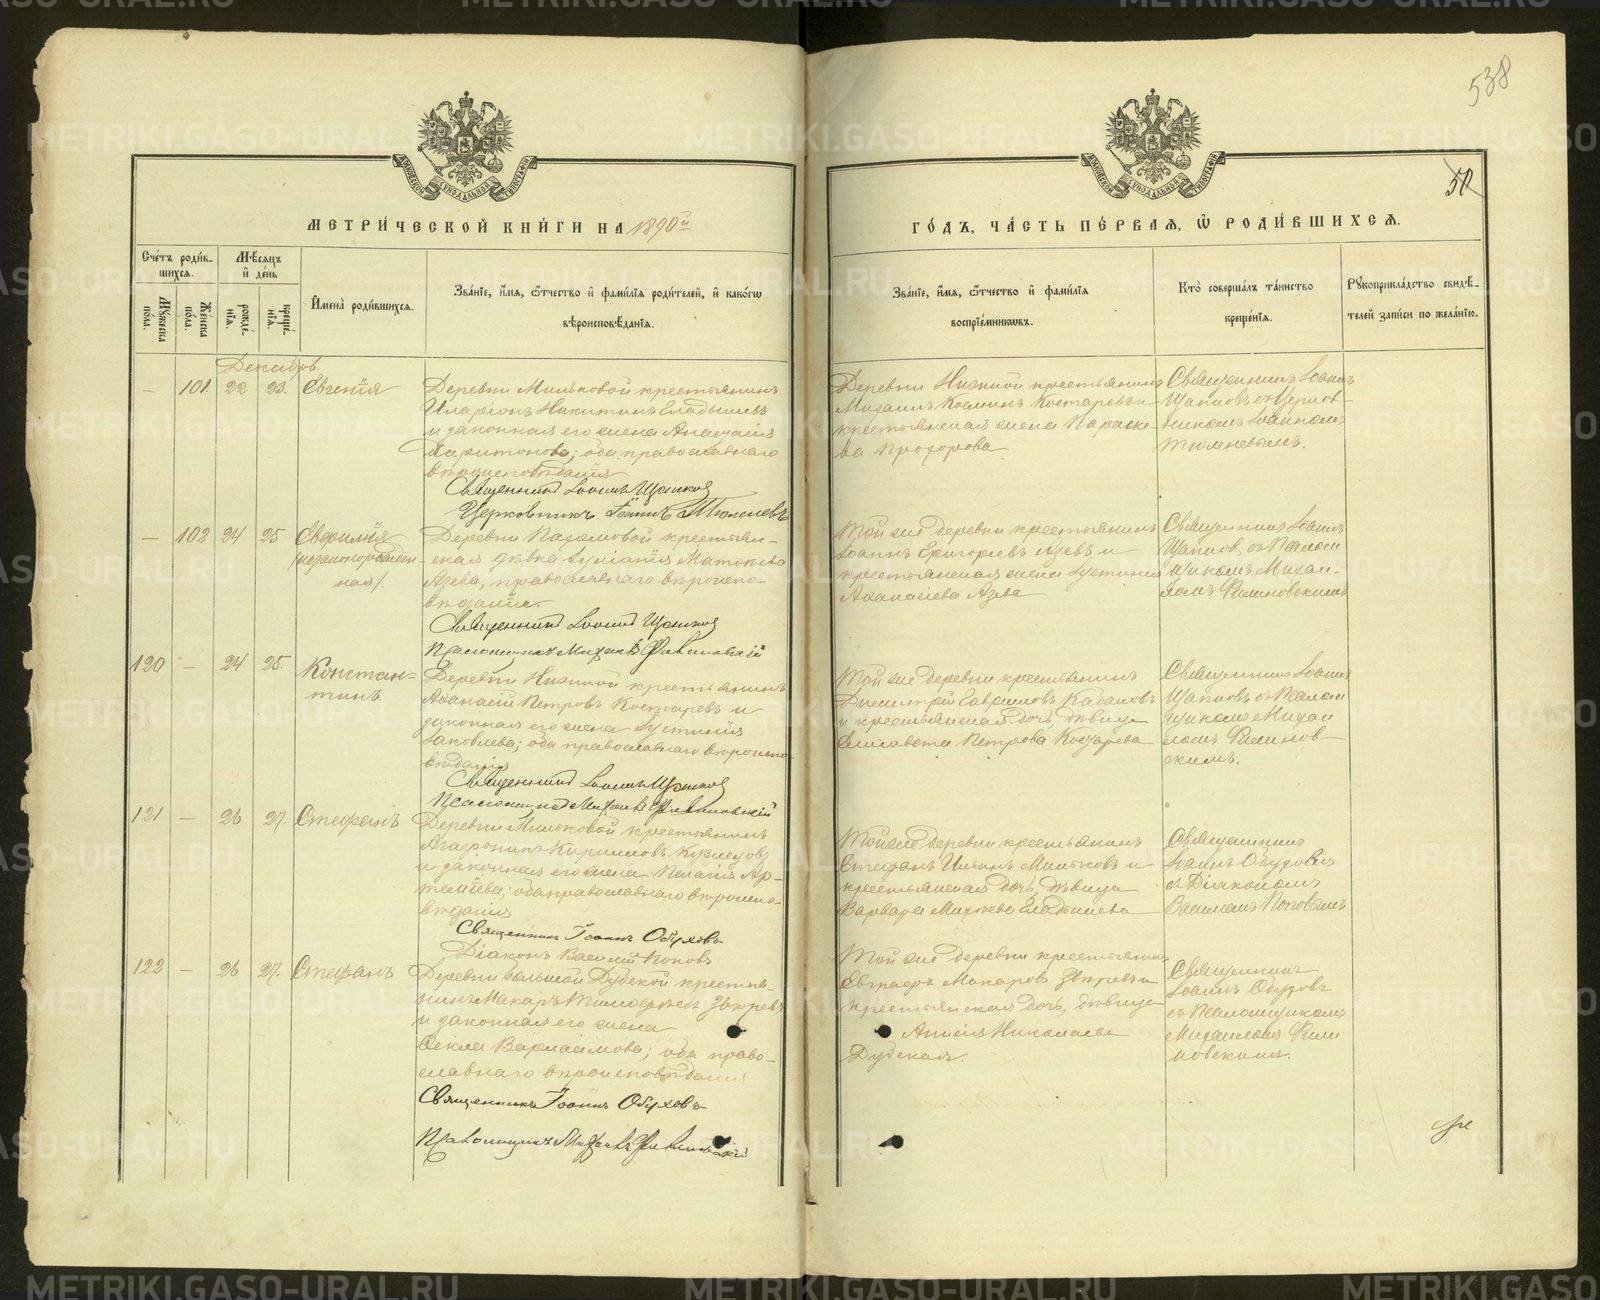 538
50
МЕТРИ́ЧЕСКОЙ КНИ́ГИ НА 1890й
ГО́ДЪ, ЧА́СТЬ ПЕ́РВАЯ, Ѡ҆ РОДИ́ВШИХСѦ.
Сче́тъ роди́в-
шихся.
Мѣ́сяцъ
и҆ де́нь
Мꙋ́жеска
по́ла.
Же́нска
по́ла.
рожде́-
нїя.
креще́-
нїя.
И҆мена̀ роди́вшихся.
Зва́нїе, и҆́мя, ѻ҆́тчество и҆ фами́лїя роди́телей, и҆ какогѡ
вѣроисповѣ́данїя.
Зва́нїе, и҆́мя, ѻ҆́тчество и҆ фами́лїя
воспрїе́мниковъ.
Кто̀ соверша́лъ та́инство
креще́нїя.
Рꙋкоприкла́дство свидѣ́-
телей за́писи по жела́нїю.
Декабрь.
— 101. 22 23. Евгенія
Деревни Мильковой крестьянинъ
Иларіонъ Никитинъ Гладышевъ
и законная его жена Анастасія
Харитонова; оба православнаго
вѣроисповѣданія
Священникъ Іоаннъ Щаповъ
Церковникъ Іоаннъ Тюленевъ
Деревни Нижной крестьянинъ
Михаилъ Косминъ Костаревъ и
крестьянская жена Параске-
ва Прохорова
Священникъ Іоаннъ
Щаповъ съ Церков-
никомъ Іоанномъ
Тюленевымъ.
— 102 24 25 Евфилия
/незаконнорожден-
ная/.
крестьян-
ская дѣвка
Азева, православнаго вѣроиспо-
вѣданія.
Священникъ Іоаннъ Щаповъ
Псаломщикъ Михаилъ Филиновскій
Той же деревни крестьянинъ
Іоаннъ Григорьевъ Азевъ и
крестьянская жена Іустинія
Аѳанасіева Азева
Священникъ Іоаннъ
Щаповъ съ Псалом
щикомъ Михаи-
ломъ Филиновскимъ
120 — 24 25. Констан-
тинъ
Деревни Нижной крестьянинъ
Аѳанасій Петровъ Костаревъ и
законная его жена Іустинія
Іаковлева; оба православнаго вѣроиспо-
вѣданія
Священникъ Іоаннъ Щаповъ
Псаломщикъ Михаилъ Филиновскій
Той же деревни крестьянинъ
Димитрій Гавриловъ Кабановъ
и крестьянская дочь, дѣвица
Елисавета Петрова Костарева
Священникъ Іоаннъ
Щаповъ съ Псалом
щикомъ Михаи
ломъ Филинов
скимъ.
121 — 26 27. Стефанъ
Деревни Мильковой крестьянинъ
Агафоникъ Кирилловъ Кузнецовъ
и законная его жена Пелагія Ар-
теміева; оба православнаго вѣроиспо-
вѣданія
Священникъ Іоаннъ Обуховъ
Діаконъ Василій Поповъ
Той же деревни крестьянинъ
Стефанъ Ильинъ Мильковъ и
крестьянская дочь, дѣвица
Варвара Гладышева
Священникъ
Іоаннъ Обуховъ
съ Діакономъ
Василіемъ Поповымъ
122 — 26 27. Стефанъ
Деревни Большой Дубской крестья-
нинъ Макаръ Тимофеевъ Звѣревъ
и законная его жена
Ѳекла Варлаамова; оба право-
славнаго вѣроисповѣданія
Священникъ Іоаннъ Обуховъ
Псаломщикъ Михаилъ Филиновскій
Той же деревни крестьянинъ
Евграфъ Макаровъ Звѣревъ и
крестьянская дочь, дѣвица
Анисія Николаева
Дубская.
Священникъ
Іоаннъ Обуховъ
съ Псаломщикомъ
Михаиломъ Фили
новскимъ.
METRIKI.GASO-URAL.RU